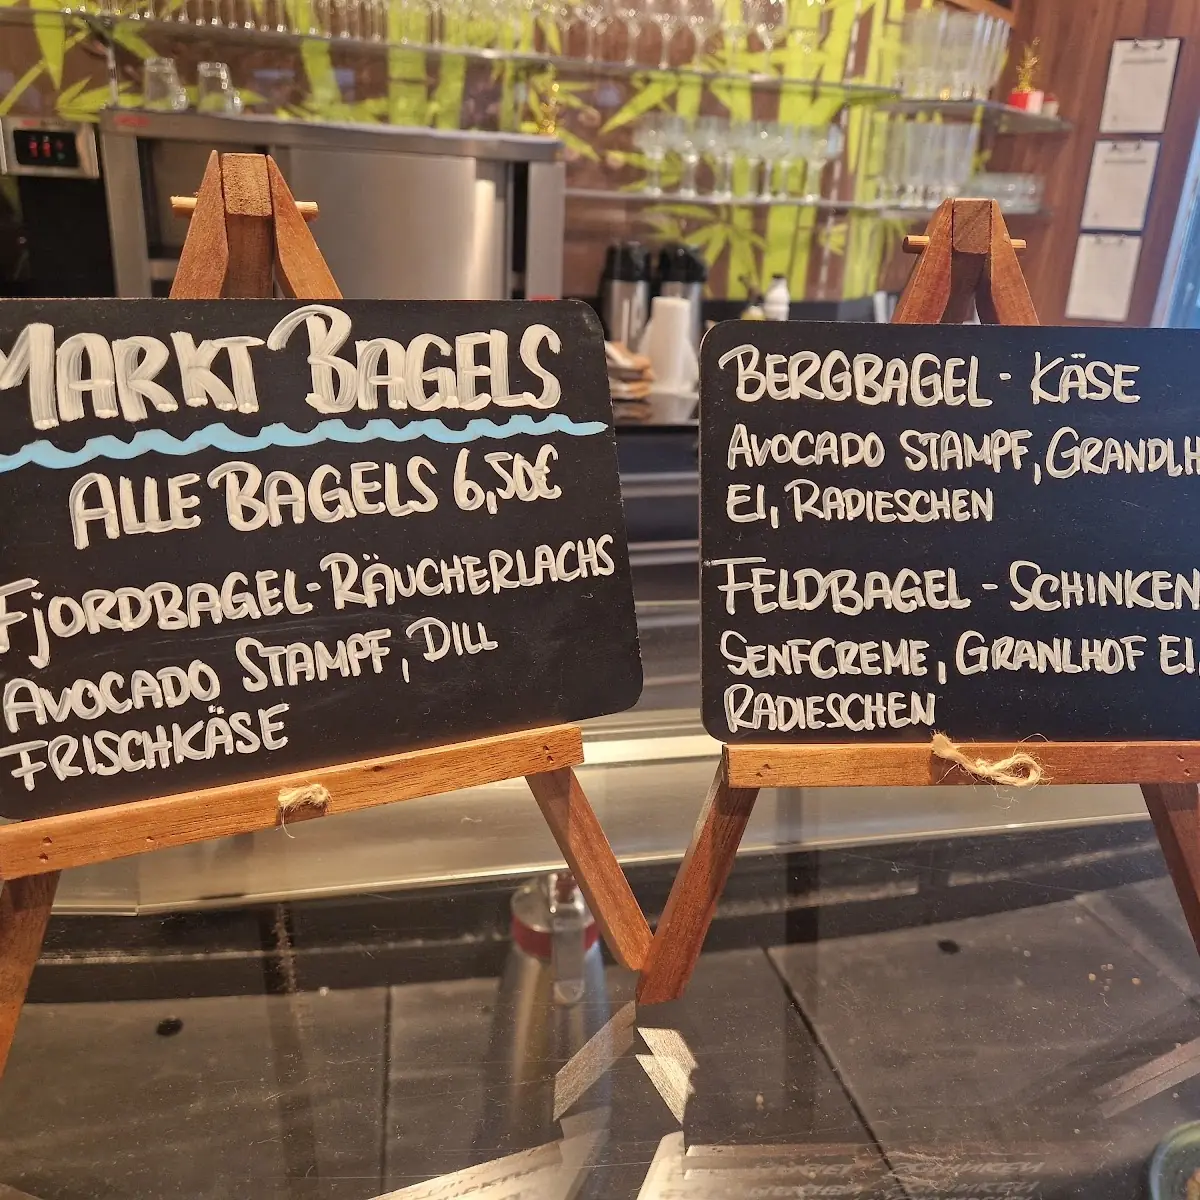 MARKT BAGELS
ALLE BAGELS 6,50€
FJORDBAGEL-RÄUCHERLACHS
AVOCADO STAMPF, DILL
FRISCHKÄSE
BERGBAGEL - KÄSE
AVOCADO STAMPF, GRANDLH
EI, RADIESCHEN
FELDBAGEL - SCHINKEN
SENFCREME, GRANLHOF EI,
RADIESCHEN